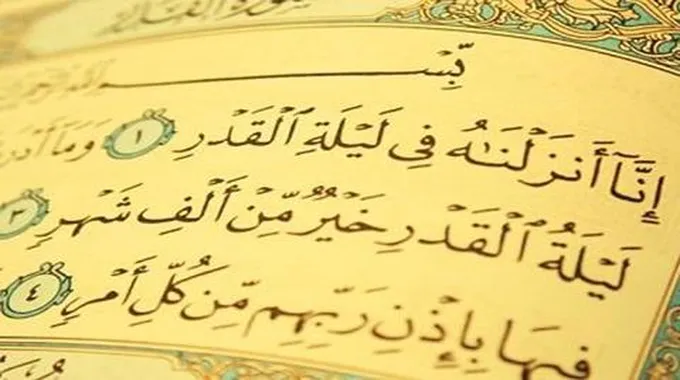 سورة القدر
بِّسْمِ اللَّهِ الرَّحْمَٰنِ
إِنَّآ أَنزَلْنَٰهُ فِى لَيْلَةِ ٱلْقَدْرِ ١ وَمَآ أَدْرَ
لَيْلَةُ ٱلْقَدْرِ خَيْرٌ مِّنْ أَلْفِ شَهْرٍ ٣
فِيهَا بِإِذْنِ رَبِّهِم مِّن كُلِّ أَمْرٍ ٤